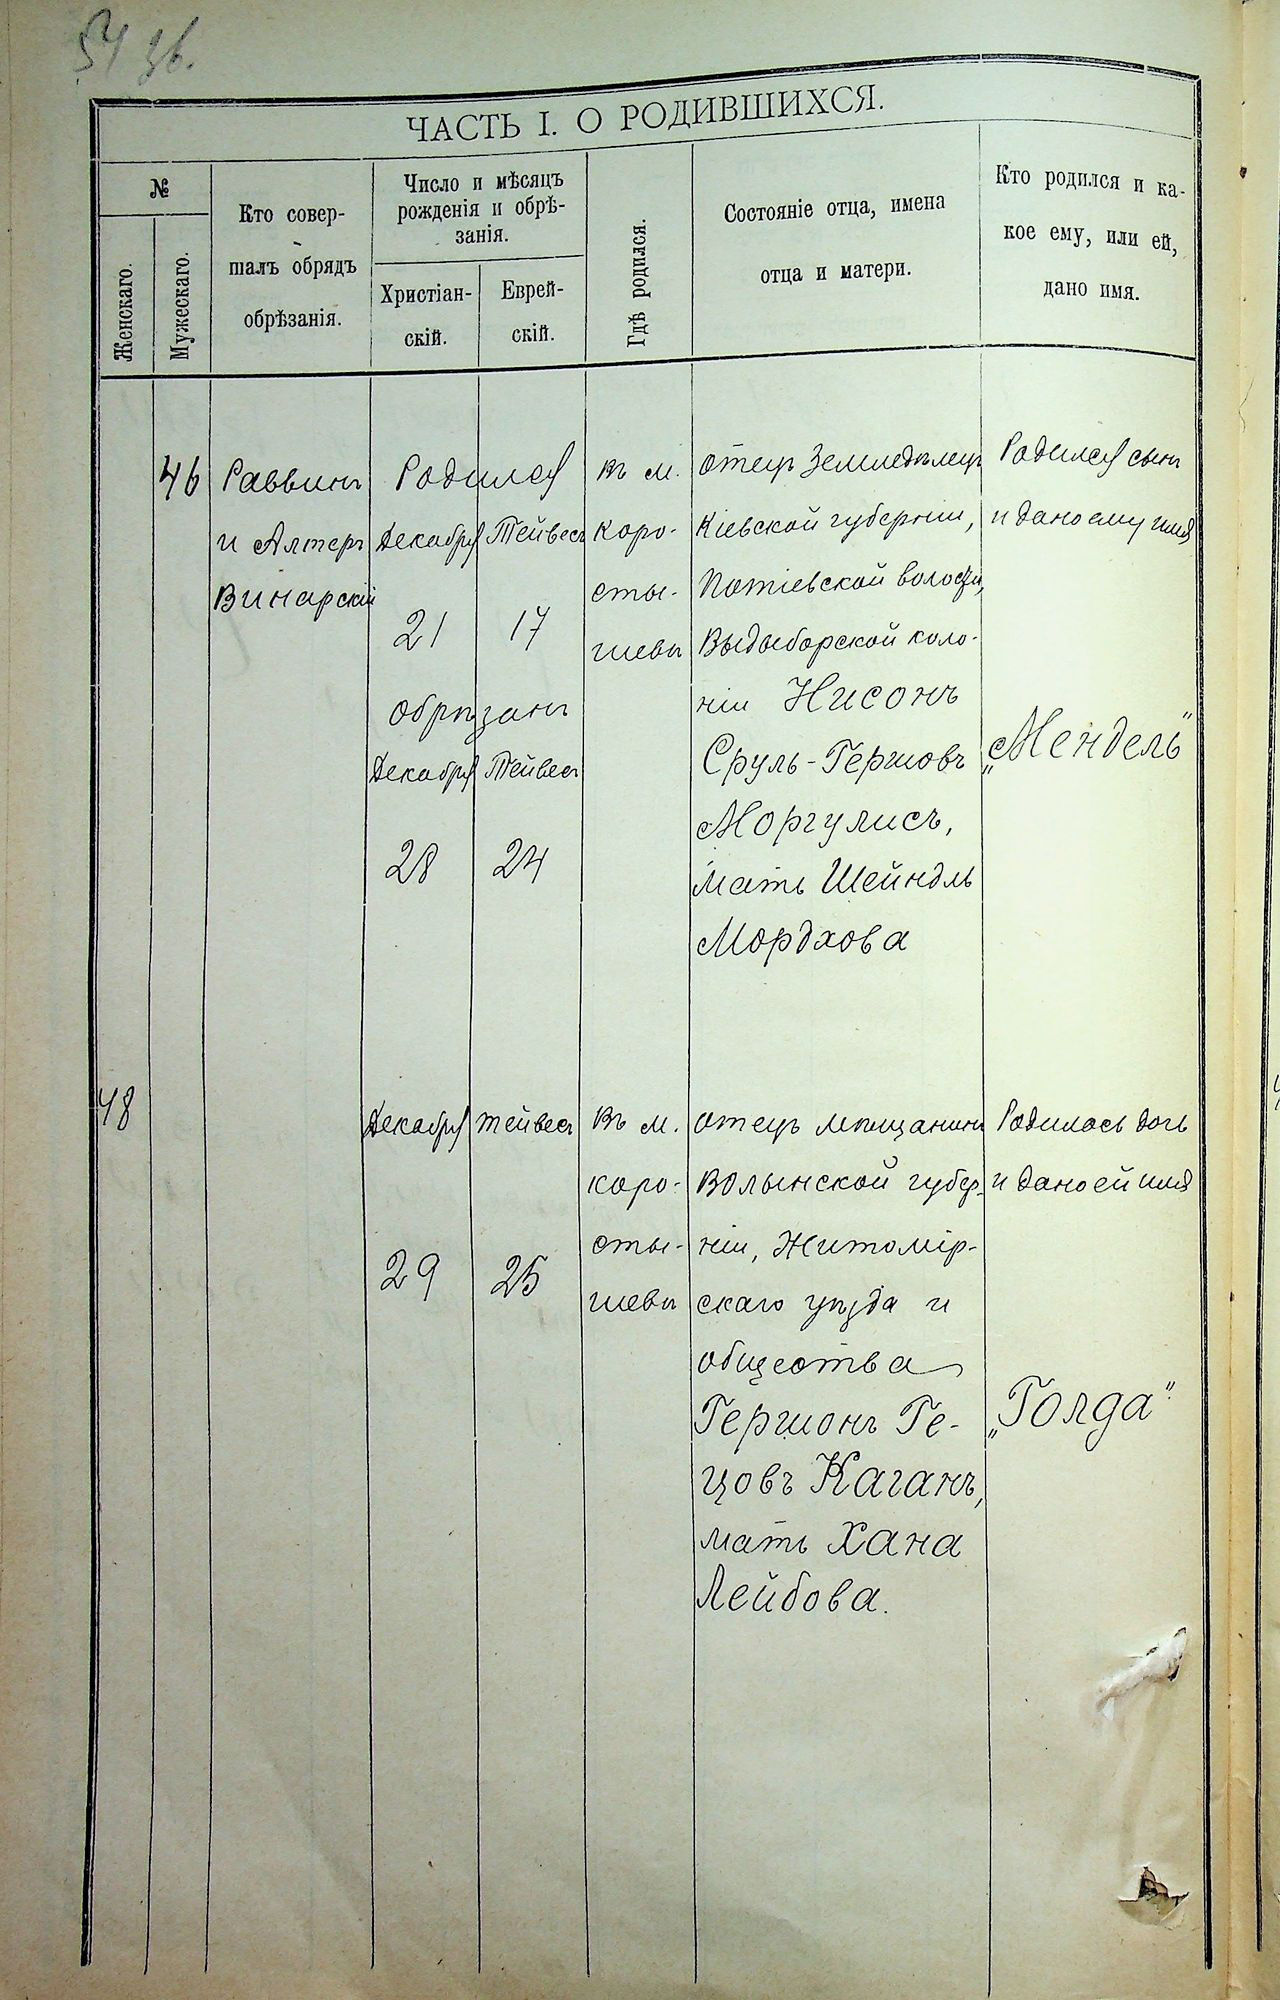 54 зв.
ЧАСТЬ I. О РОДИВШИХСЯ.
№
Женскаго.
Мужескаго.
Кто совер-
шалъ обрядъ
обрѣзанія.
Число и мѣсяцъ
рожденія и обрѣ-
занія.
Христіан-
скій.
Еврей-
скій.
Гдѣ родился.
Состояніе отца, имена
отца и матери.
Кто родился и ка-
кое ему, или ей,
дано имя.
46
Раввинъ
и Алтеръ
Винарскій
Родился
Декабря Тейвесъ
21 17
обрѣзанъ
Декабря Тейвесъ
28 24
въ м.
коро-
сты-
шевѣ
отецъ Земледѣлецъ
Кіевской губерніи,
Потіевской волости,
Выдыборской коло-
ніи Нисонъ
Сруль-Гершовъ
Моргулисъ,
мать Шейндль
Мордхова
Родился сынъ
и дано ему имя
„Мендель"
48
Декабря тейвесъ
29 25
въ м.
коро-
сты-
шевѣ
отецъ мѣщанинъ
Волынской губер-
ніи, Житомір-
скаго уѣзда и
общества
Гершонъ Ге-
цовъ Каганъ,
мать Хана
Лейбова.
Родилась дочь
и дано ей имя
„Голда"